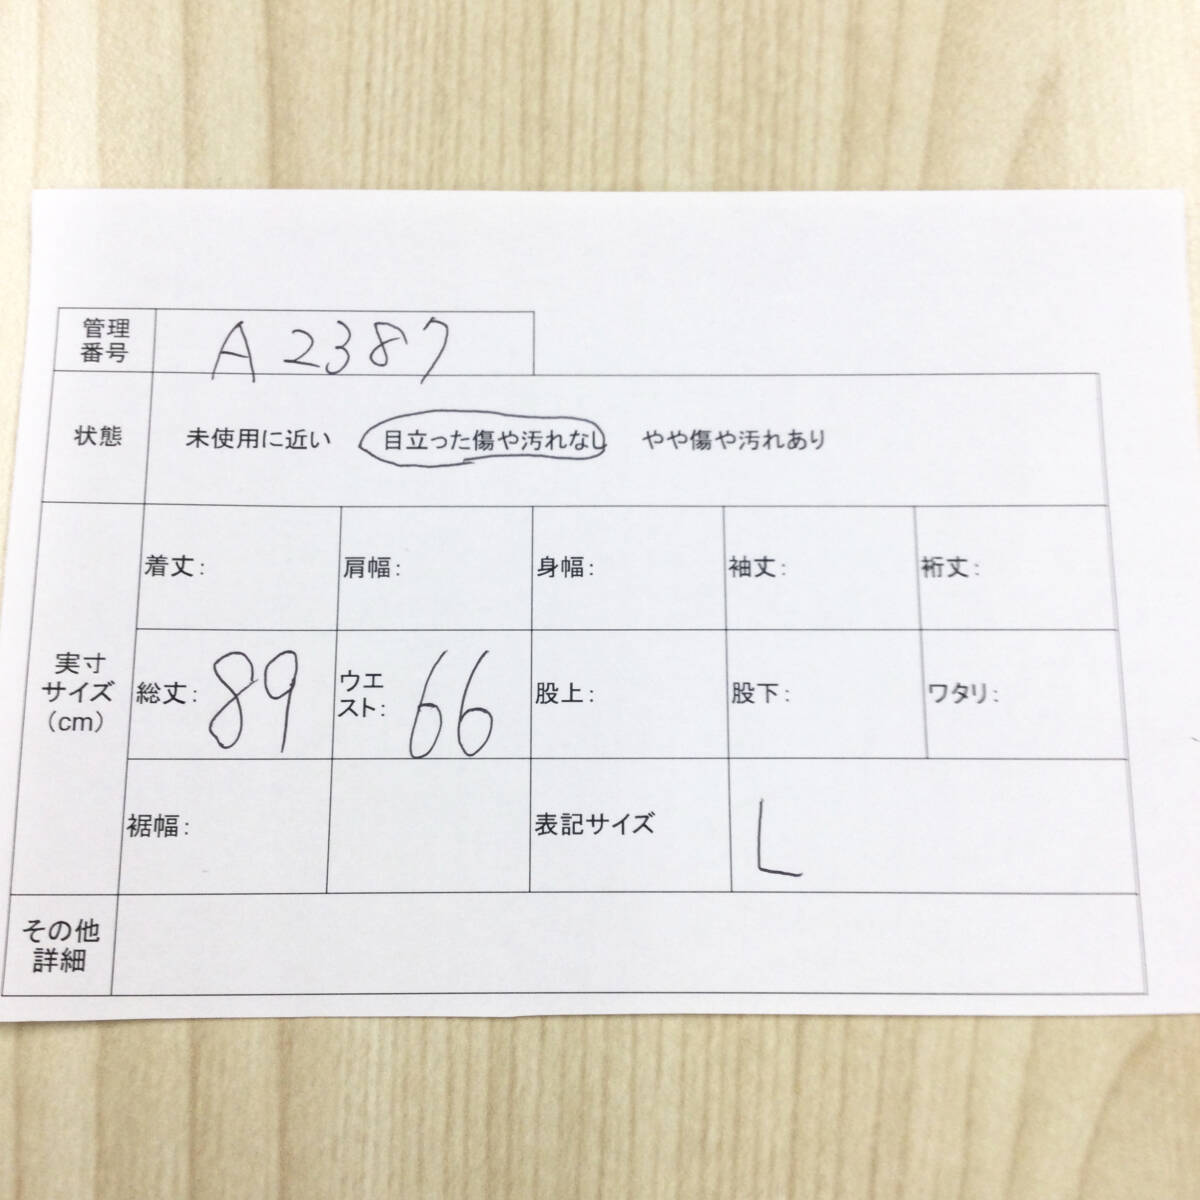 管理
番号
A2387
状態
未使用に近い 目立った傷や汚れなし やや傷や汚れあり
実寸
サイズ
（cm）
着丈: 肩幅: 身幅: 袖丈: 裄丈:
総丈: 89
ウエ
スト: 66
股上: 股下: ワタリ:
裾幅: 表記サイズ L
その他
詳細